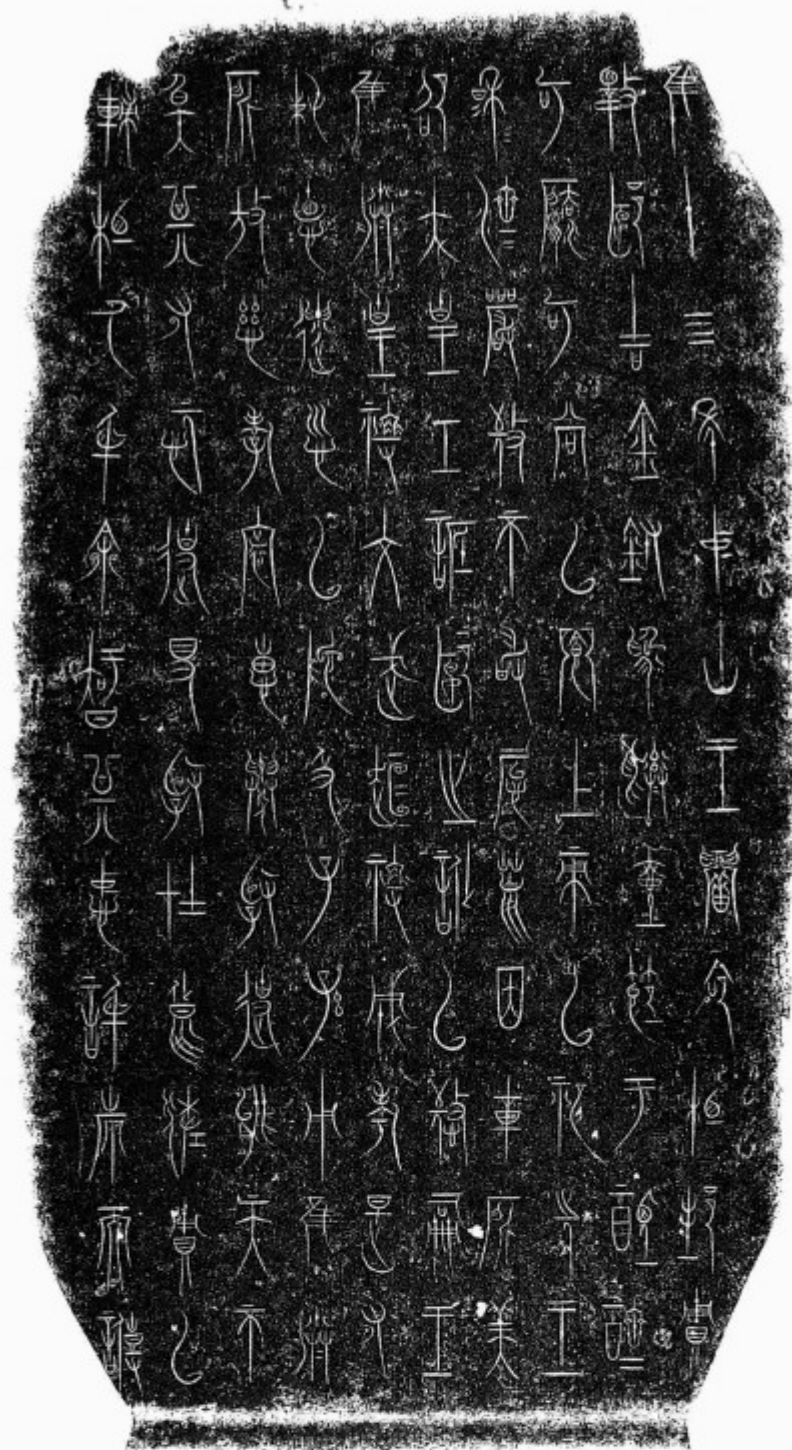 隹十四年中山王𧊒命相邦賙
擇郾吉金鑄為彝壺節于禋齊
可法可尚以饗上帝以祀先王
穆=濟=嚴敬不敢怠荒因載所美
卲大皇工詆郾之訛以憼嗣王
隹朕皇祖文武桓祖成考是有
純德遺訓以陀及子孫用隹朕
所放慈孝寰惠舉賢使能天不
斁其有愿使得賢在良佐賙以
輔相厥身余智其忠信也而專